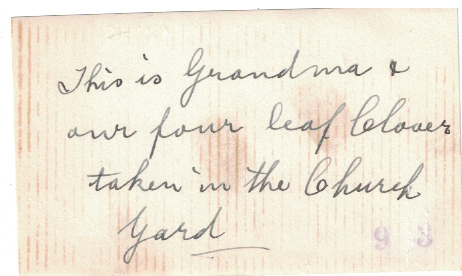 This is Grandma &
our four leaf Clover
taken in the Church
Yard